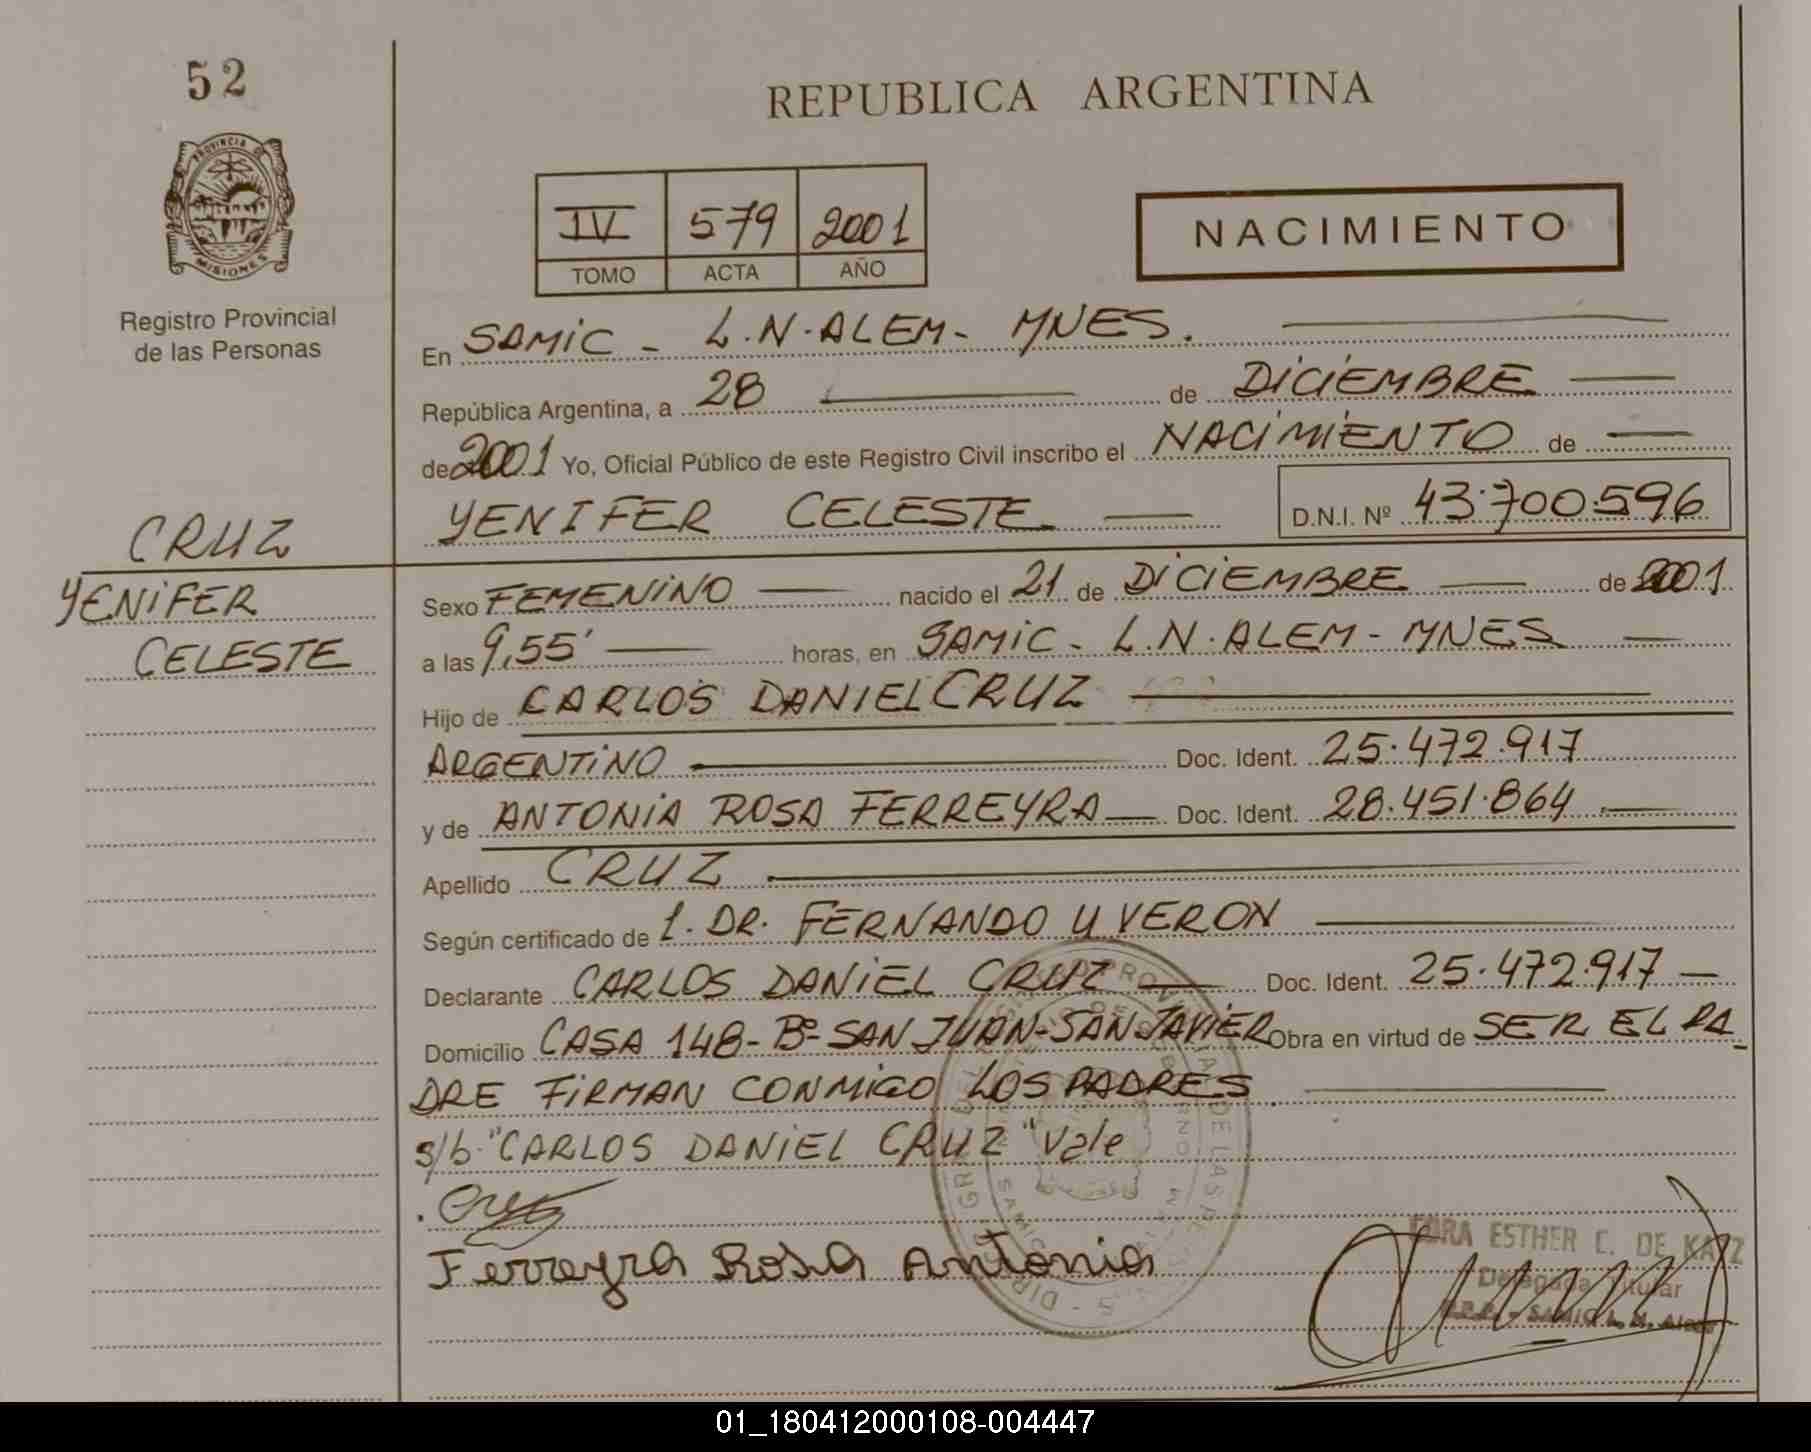 52
PROVINCIA DE
MISIONES
Registro Provincial
de las Personas
CRUZ
YENIFER
CELESTE
REPUBLICA ARGENTINA
IV 579 2001
TOMO ACTA AÑO
NACIMIENTO
En SAMIC - L.N. ALEM - MNES.
República Argentina, a 28 de DICIEMBRE
de 2001 Yo, Oficial Público de este Registro Civil inscribo el NACIMIENTO de
YENIFER CELESTE D.N.I. Nº 43.700.596
Sexo FEMENINO nacido el 21 de DICIEMBRE de 2001
a las 9,55' horas, en SAMIC - L.N. ALEM - MNES
Hijo de CARLOS DANIEL CRUZ
ARGENTINO Doc. Ident. 25.472.917
y de ANTONIA ROSA FERREYRA Doc. Ident. 28.451.864
Apellido CRUZ
Según certificado de 1. DR. FERNANDO U VERON
Declarante CARLOS DANIEL CRUZ Doc. Ident. 25.472.917
Domicilio CASA 148 - Bº SAN JUAN - SAN JAVIER Obra en virtud de SER EL PA
DRE FIRMAN CONMIGO LOS PADRES.
s/b "CARLOS DANIEL CRUZ" Vale
Ferreyra Rosa Antonia
ESTHER C. DE KATZ
Delegada Titular
SAMIC L. N. Alem
01_180412000108-004447